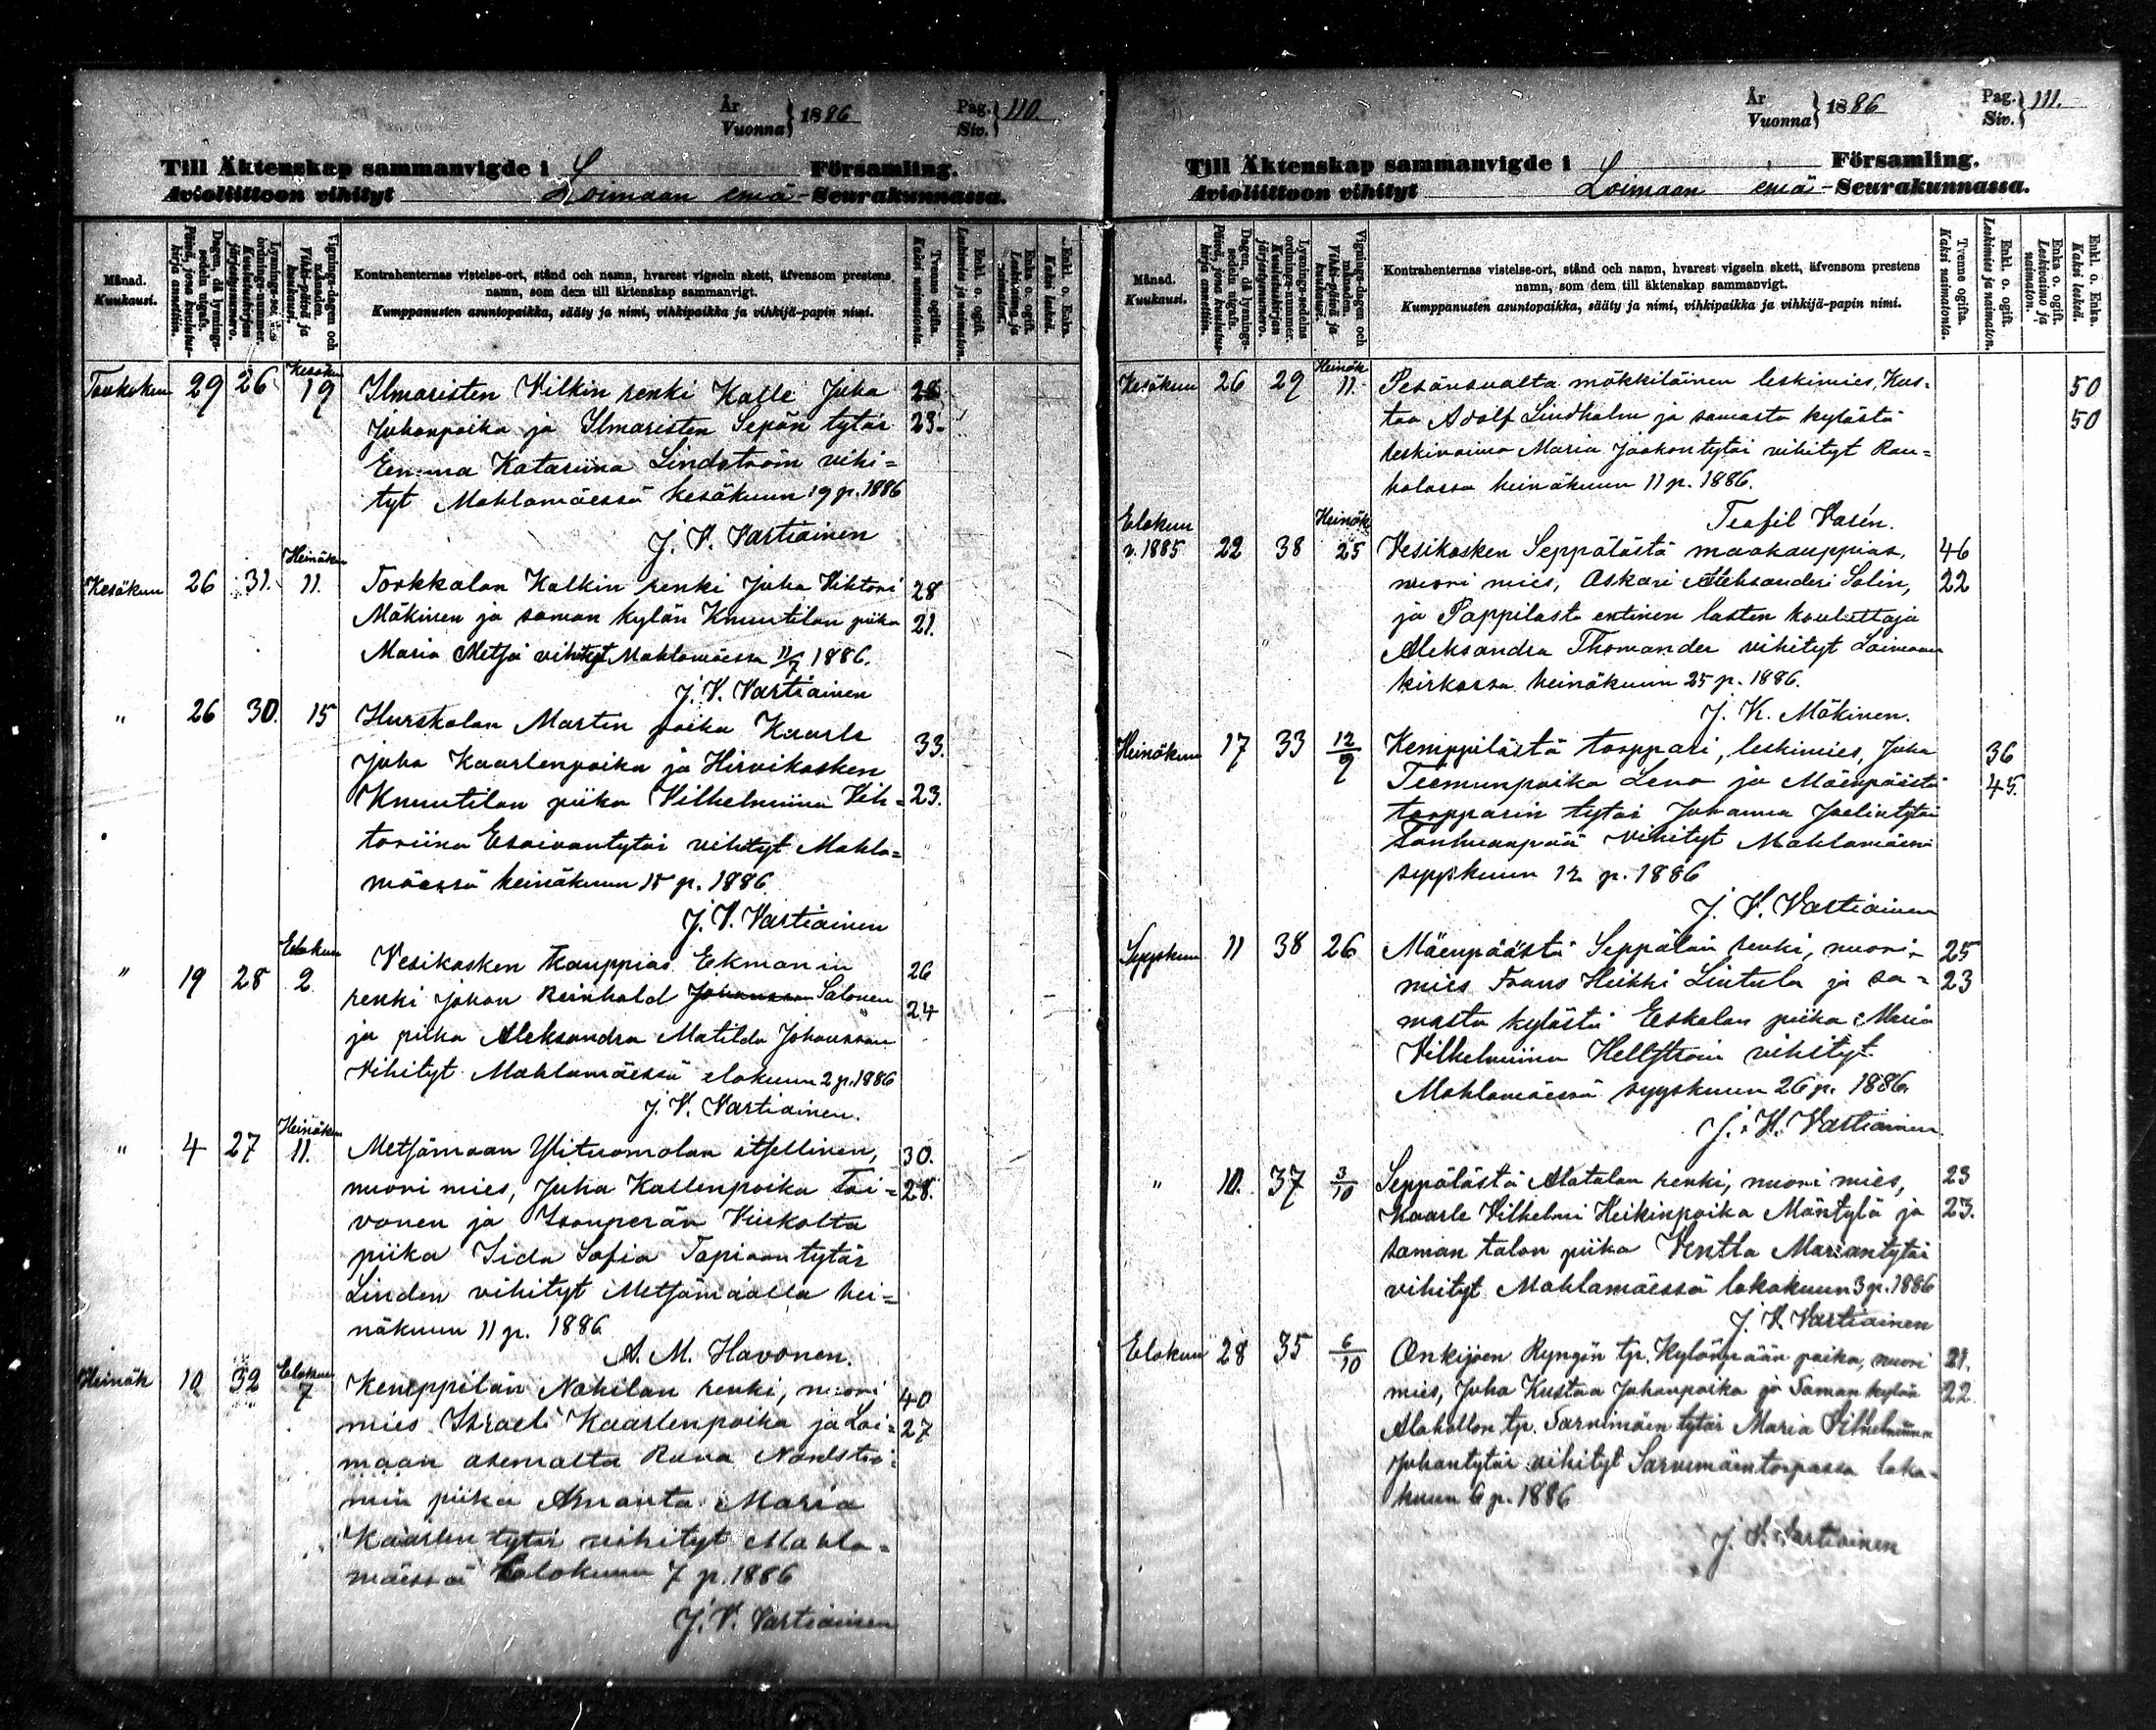 År
Vuonna } 1886
Pag.
Siv. } 110.
Till Äktenskap sammanvigde i L Församling.
Avioliittoon vihityt Loimaan emä- Seurakunnassa.
Månad.
Kuukausi.
Dagen, då lysnings-sedeln utgafs.
Päivä, jona kuulutus-kirja annettiin.
Lysnings-sedelns ordnings-nummer.
Kuulutuskirjan järjestysnumero.
Vignings-dagen och månaden.
Vihki-päivä ja kuukausi.
Kontrahenternas vistelse-ort, stånd och namn, hvarest vigseln skett, äfvensom prestens
namn, som dem till äktenskap sammanvigt.
Kumppanusten asuntopaikka, sääty ja nimi, vihkipaikka ja vihkijä-papin nimi.
Tvenne ogifta.
Kaksi naimatonta.
Enkl. o. ogift.
Leskimies ja naimaton.
Enka o. ogift.
Leskivaimo ja naimaton.
Enkl. o. Enka.
Kaksi leskeä.
Toukokuu 29 26 Kesäkuu 19 Ilmaristen Vilkin renki Kalle Juha 28
Juhanpoika ja Ilmaristen Sepän tytär 23
Emma Katariina Lindström vihi=
tyt Mahlamäessä kesäkuun 19 p. 1886
J. V. Vartiainen
Kesäkuu 26 31. Heinäkuu 11. Torkkalan Kalkin renki Juha Viktori 28
Mäkinen ja saman kylän Knuutilan piika 21.
Maria Metsä vihityt Mahlamäessä 11/7 1886.
J. V. Vartiainen
" 26 30. 15 Hurskalan Martin poika Kaarle 33.
Juho Kaarlenpoika ja Hirvikosken
Knuutilan piika Vilhelmiina Vik= 23.
toriina Esaivantytär vihityt Mahla=
mäessä heinäkuun 15 p. 1886
J. V. Vartiainen
" 19 28 Elokuu 2 Vesikosken Kauppias Eekmanin 26
renki Johan Reinhold Johansson Salonen 24
ja piika Aleksandra Matilda Johansson
Vihityt Mahlamäessä elokuun 2 p. 1886
J. V. Vartiainen.
" 4 27 Heinäkuu 11. Metsämaan Ylituomolan itsellinen, 30.
nuori mies, Juha Kallenpoika Toi= 28.
vonen ja Isonperän Uuskolta
piika Iida Sofia Tapiaantytär
Linden vihityt Metsämaalla hei=
näkuun 11 p. 1886
A. M. Havonen.
Heinäk 10 32 Elokuu 7 Kemppilän Nahilan renki, nuori 40
mies Israel Kaarlenpoika ja Loi= 27
maan asemalta Rova Nordströ=
min piika Amanta Maria
Kaarlen tytär vihityt Mahla=
mäessä Elokuun 7 p. 1886
J. V. Vartiainen
År
Vuonna } 1886
Pag.
Siv. } 111.
Till Äktenskap sammanvigde i Församling.
Avioliittoon vihityt Loimaan emä- Seurakunnassa.
Månad.
Kuukausi.
Dagen, då lysnings-sedeln utgafs.
Päivä, jona kuulutus-kirja annettiin.
Lysnings-sedelns ordnings-nummer.
Kuulutuskirjan järjestysnumero.
Vignings-dagen och månaden.
Vihki-päivä ja kuukausi.
Kontrahenternas vistelse-ort, stånd och namn, hvarest vigseln skett, äfvensom prestens
namn, som dem till äktenskap sammanvigt.
Kumppanusten asuntopaikka, sääty ja nimi, vihkipaikka ja vihkijä-papin nimi.
Tvenne ogifta.
Kaksi naimatonta.
Enkl. o. ogift.
Leskimies ja naimaton.
Enka o. ogift.
Leskivaimo ja naimaton.
Enkl. o. Enka.
Kaksi leskeä.
Kesäkuu 26 29 Heinäk 11. Pesänsualta mökkiläinen leskimies, Kus= 50
taa Adolf Lindholm ja samasta kylästä 50
leskivaimo Maria Jaakontytär vihityt Rau=
halassa heinäkuun 11 p. 1886.
Teofil Vasén.
Elokuu v. 1885 22 38 Heinäk 25 Vesikosken Seppälästä maakauppias, 46
nuori mies, Oskari Aleksanderi Salin, 22
ja Pappilasta entinen lasten kouluttaja
Aleksandra Thomander vihityt Loimaan
kirkossa heinäkuun 25 p. 1886.
J. K. Mäkinen.
Heinäkuu 17 33 12/9 Kemppilästä torppari, leskimies, Juha 36
Teemunpoika Leno ja Mäenpäästä 45.
torpparin tytär Johanna Joelintytär
Tanhuanpää vihityt Mahlamäessä
syyskuun 12 p. 1886
J. V. Vartiainen
Syyskuu 11 38 26 Mäenpäästä Seppälän renki, nuori- 25
mies Frans Heikki Lintula ja sa= 23
masta kylästä Eskolan piika Maria
Vilhelmiina Hellström vihityt
Mahlamäessä syyskuun 26 p. 1886.
J. V. Vartiainen
" 10. 37 3/10 Seppälästä Alatalan renki, nuori mies, 23
Kaarle Vilhelmi Heikinpoika Mäntylä ja 23.
saman talon piika Vendla Mariantytär
vihityt Mahlamäessä lokakuun 3 p. 1886
J. V. Vartiainen
Elokuu 28 35 6/10 Onkijoen Ryngön tp. Kylänpään poika, nuori 21.
mies, Juha Kustaa Juhanpoika ja saman kylän 22
Alahollon tp. Sarvimäen tytär Maria Vilhelmiina
Juhantytär vihityt Sarvimäen torpassa loka-
kuun 6 p. 1886
J. V. Vartiainen